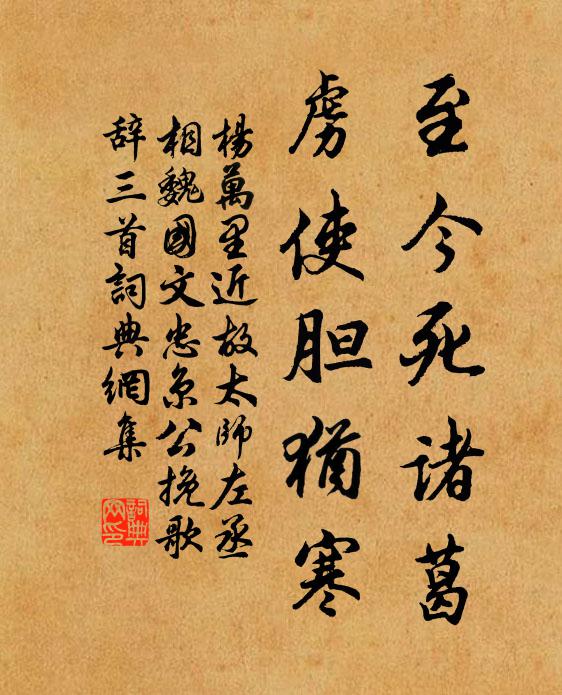 至今死诸葛
虏使胆犹寒
杨万里近故太师左丞
相魏国文忠京公挽歌
辞三首词典网集
詞典
网印